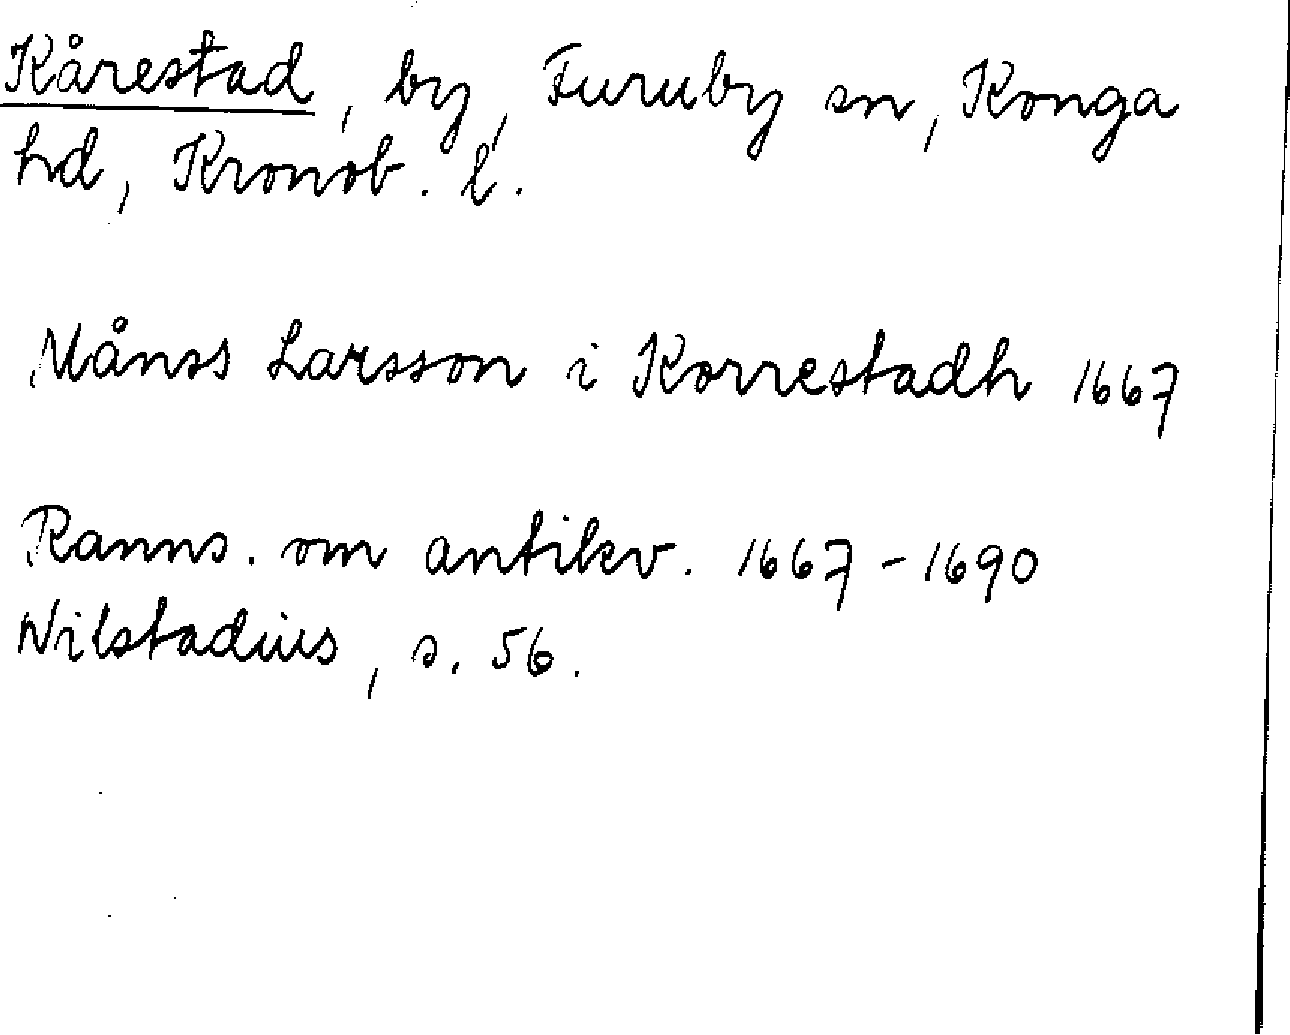 Kårestad, by, Furuby sn, Konga
hd, Kronob. l.
Månss Larsson i Korrestadh 1667
Ranns. om antikv. 1667-1690
Nilstadius, s. 56.